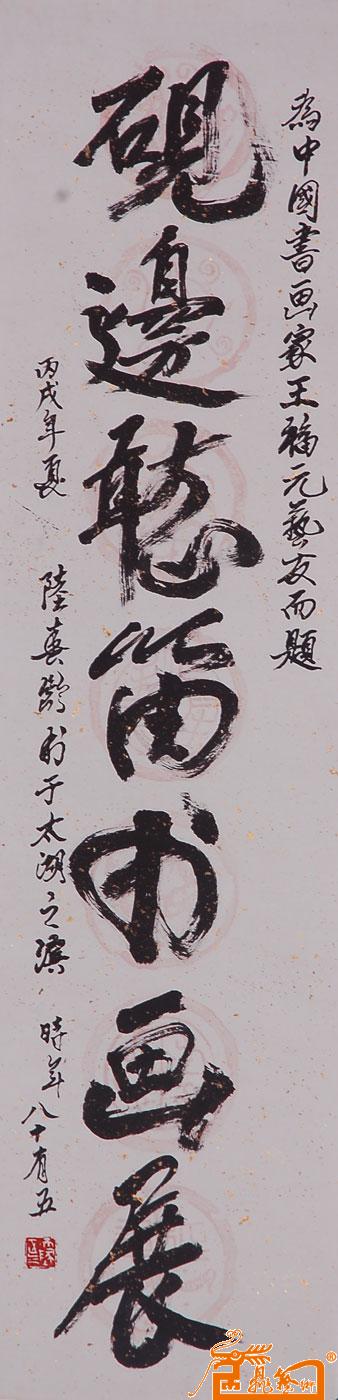 為中國書画家王福元藝友而題
硯邊聽笛书画展
丙戌年夏 陸春齡书于太湖之濱 時年八十有五